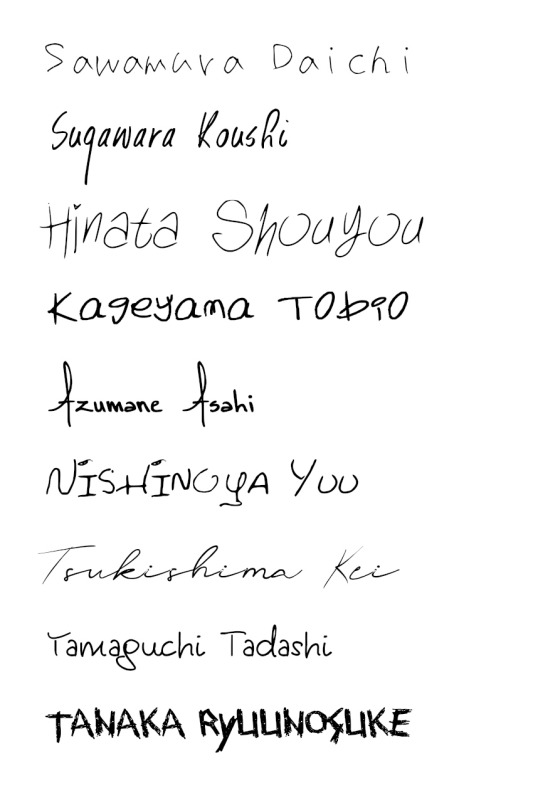 Sawamura Daichi
Sugawara Koushi
Hinata Shouyou
Kageyama TObiO
Azumane Asahi
NiSHiNOYA YUU
Tsukishima Kei
Yamaguchi Tadashi
TANAKA RyUUNOSUKE